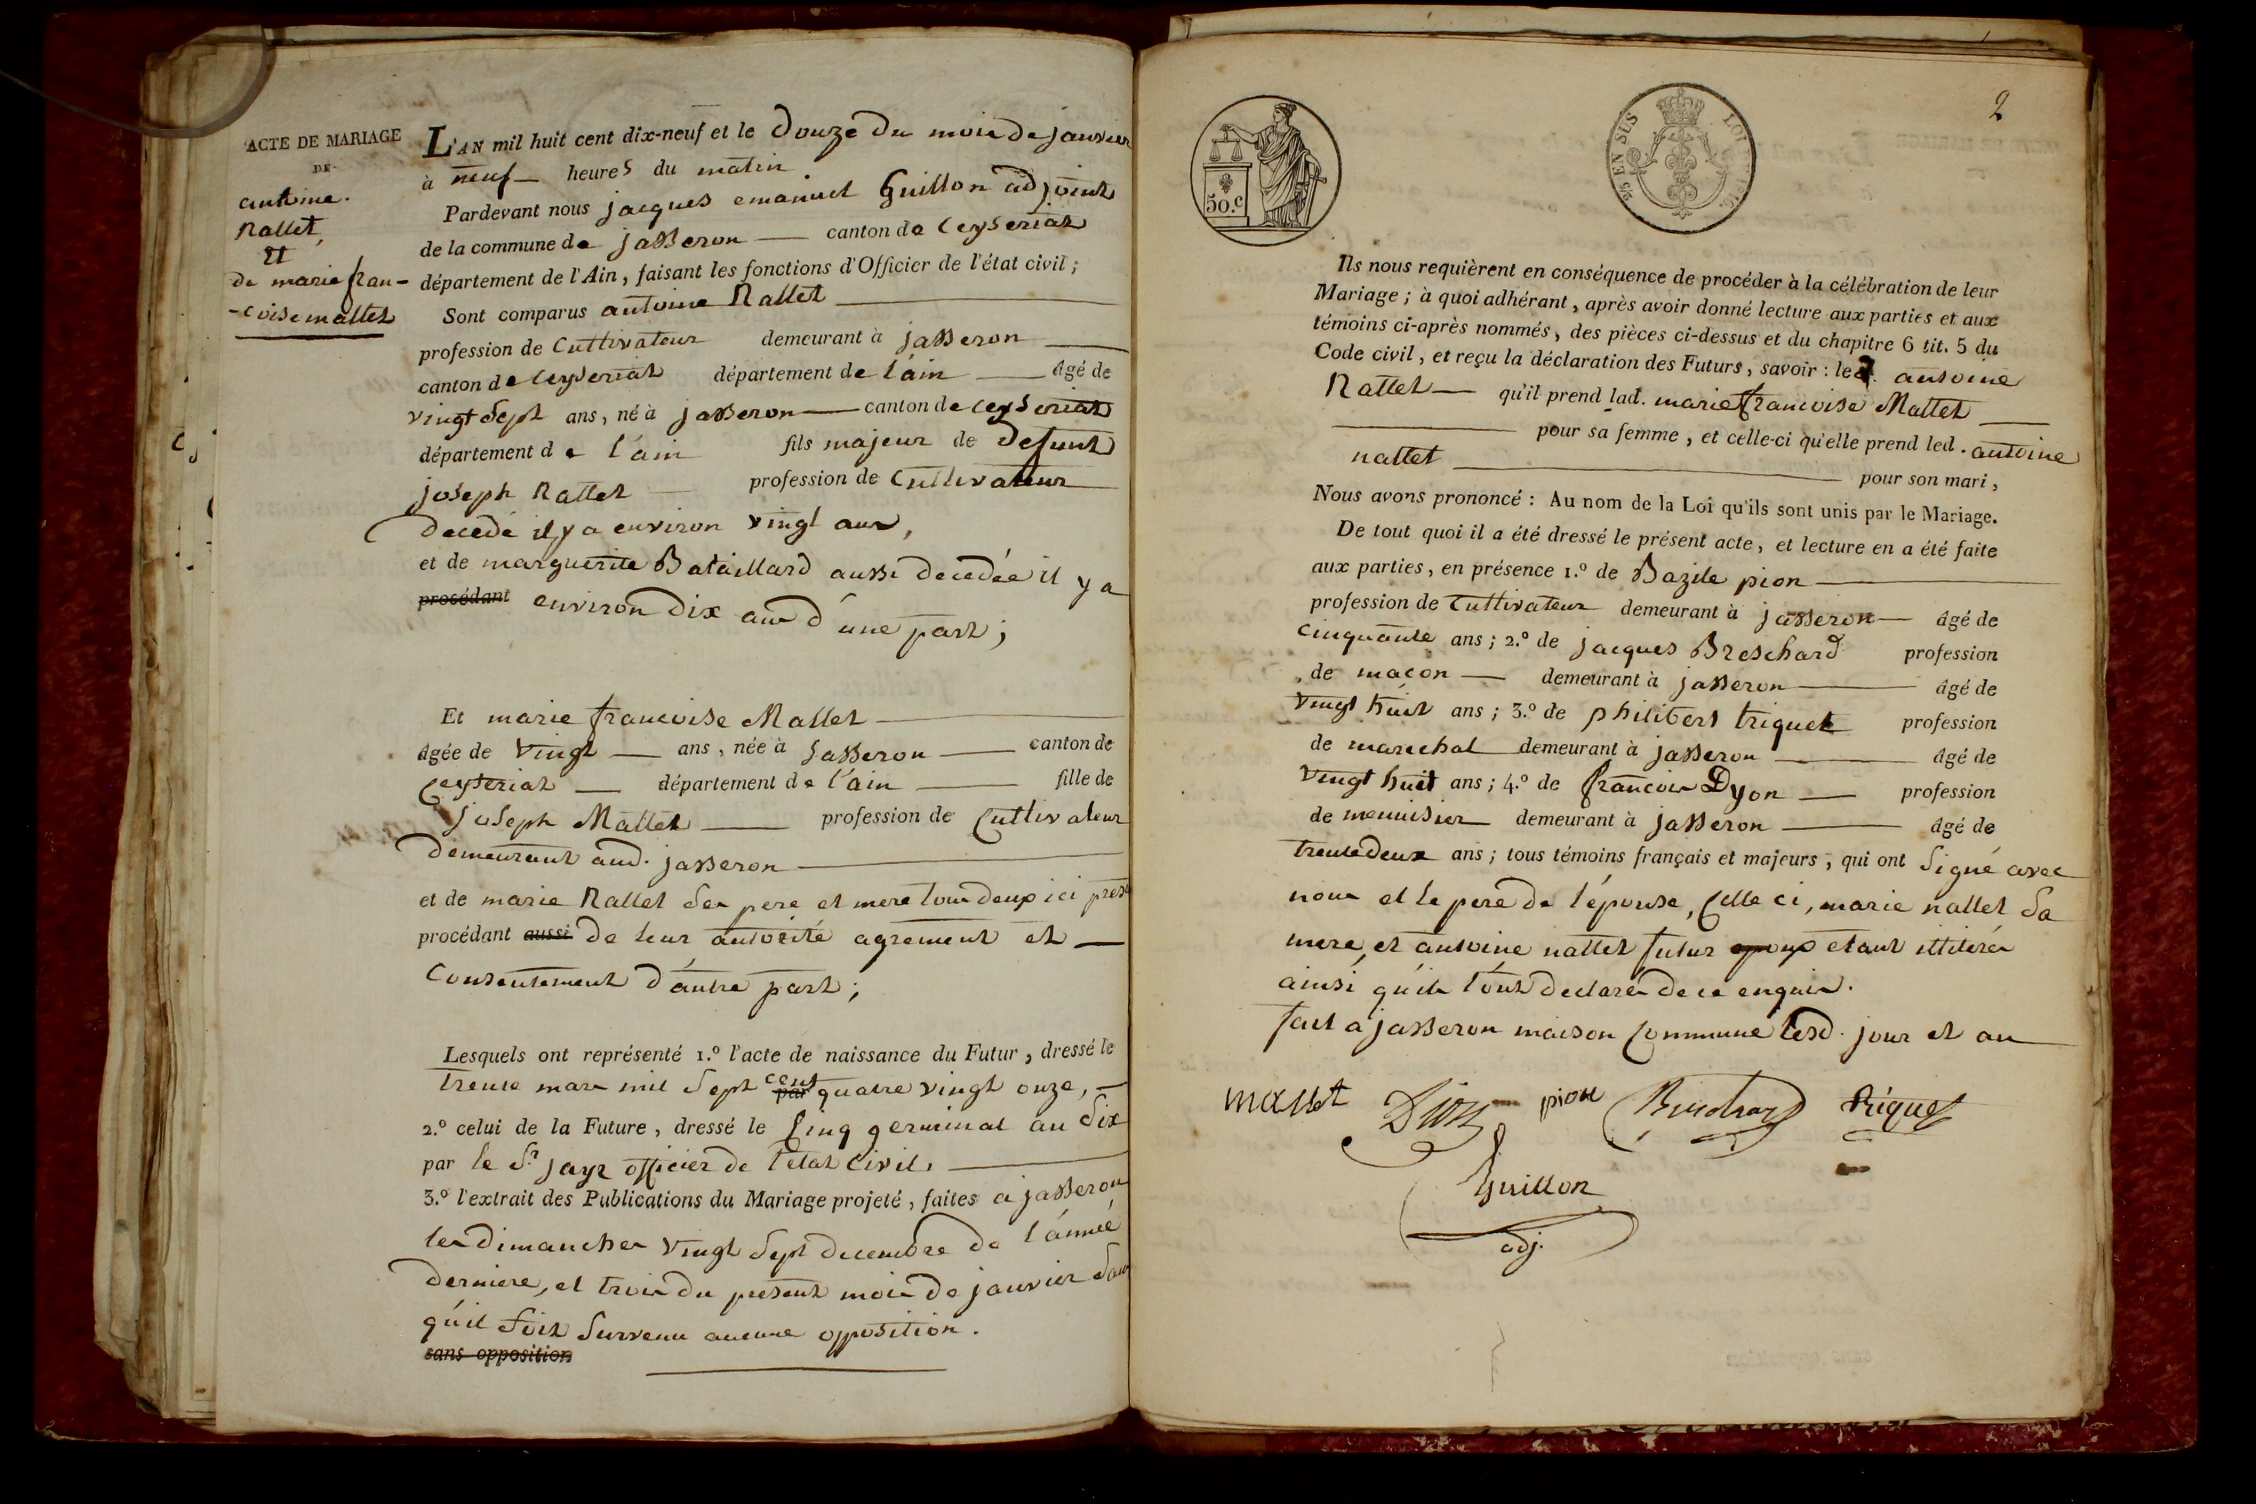 ACTE DE MARIAGE
DE
antoine.
Nallet
Et
de marie fran-
-coise mallet
L'AN mil huit cent dix-neuf et le douze du mois de janvier
à neuf heures du matin
Pardevant nous jacques emanuel Guillon adjoint
de la commune de jasseron canton de Ceyseriat
département de l'Ain, faisant les fonctions d'Officier de l'état civil;
Sont comparus antoine Nallet
profession de Cultivateur demeurant à jasseron
canton de Ceyseriat département de l'ain âgé de
vingt Sept ans, né à jasseron canton de ceyseriat
département de l'ain fils majeur de defunt
joseph Nallet profession de Cultivateur
decedé il y a environ vingt ans,
et de marguerite Bataillard aussi decedée il y a
procédant environ dix ans d'une part;
Et marie francoise Mallet
âgée de vingt ans, née à jasseron canton de
Ceyseriat département de l'ain fille de
joseph Mallet profession de Cultivateur
demeurant aud. jasseron
et de marie Nallet Ses pere et mere tous deux ici prest
procédant aussi de leur autorité agrement et
Consentement d'autre part;
Lesquels ont représenté 1.º l'acte de naissance du Futur, dressé le
trente mars mil Sept cent par quatre vingt onze,
2.º celui de la Future, dressé le Cinq germinal an Six
par le Sr jayr officier de l'etat Civil,
3.º l'extrait des Publications du Mariage projeté, faites a jasseron
les dimanches vingt Sept decembre de l'année
derniere, et trois du present mois de janvier Sans
qu'il Soit Survenu aucune opposition.
sans opposition
2
50.c
25 EN SUS
Ils nous requièrent en conséquence de procéder à la célébration de leur
Mariage; à quoi adhérant, après avoir donné lecture aux parties et aux
témoins ci-après nommés, des pièces ci-dessus et du chapitre 6 tit. 5 du
Code civil, et reçu la déclaration des Futurs, savoir: led. antoine
Nallet qu'il prend lad. marie francoise Mallet
pour sa femme, et celle-ci qu'elle prend led. antoine
nallet pour son mari,
Nous avons prononcé: Au nom de la Loi qu'ils sont unis par le Mariage.
De tout quoi il a été dressé le présent acte, et lecture en a été faite
aux parties, en présence 1.º de Bazile pion
profession de Cultivateur demeurant à jasseron âgé de
cinquante ans; 2.º de jacques Breschard profession
de macon demeurant à jasseron âgé de
vingt huit ans; 3.º de philibert triquet profession
de marechal demeurant à jasseron âgé de
vingt huit ans; 4.º de francois Dyon profession
de menuisier demeurant à jasseron âgé de
trente deux ans; tous témoins français et majeurs, qui ont Signé avec
nous et le pere de l'épouse, Celle ci, marie nallet Sa
mere, et antoine nallet futur epoux etant illiterés
ainsi qu'ils l'ont declarés de ce enquis.
fait a jasseron maison Commune lesd. jour et an
mallet Dion pion Breschard triquet
Guillon
adj.